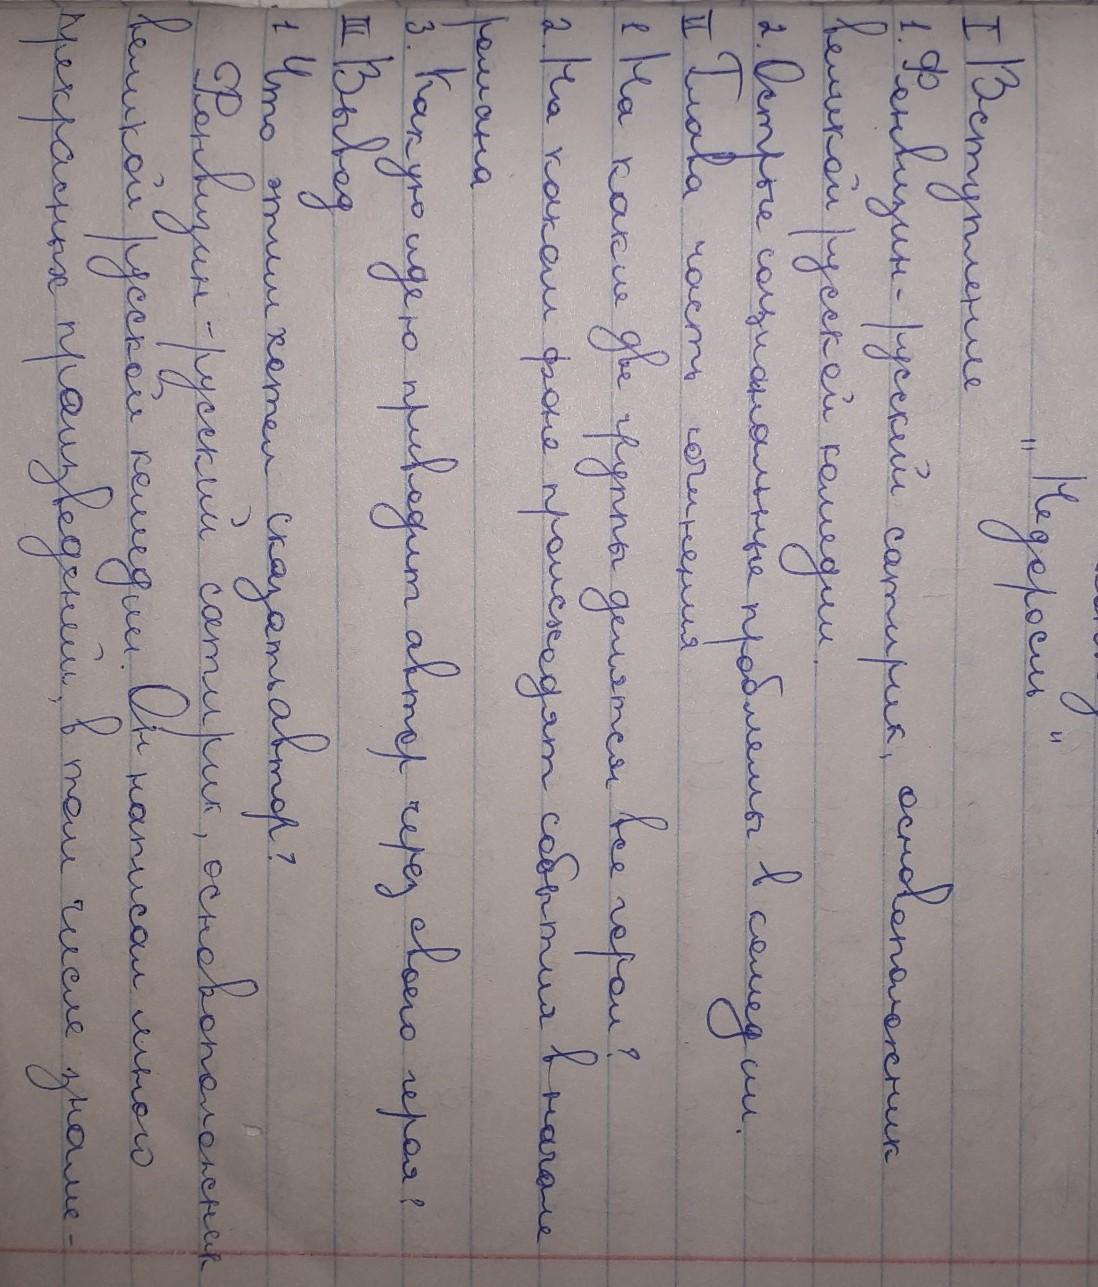 "Недоросль"
I Вступление
1. Фонвизин - русский сатирик, основоположник
великой русской комедии.
2. Острые социальные проблемы в комедии.
II Глава часть сочинения
1 На какие две группы делятся все герои?
2. На каком фоне происходят события в начале
романа
3. Какую идею приводит автор через своего героя?
III Вывод
1 Что этим хотел сказать автор?
Фонвизин - русский сатирик, основоположник
великой русской комедии. Он написал много
прекрасных произведений, в том числе знаме-